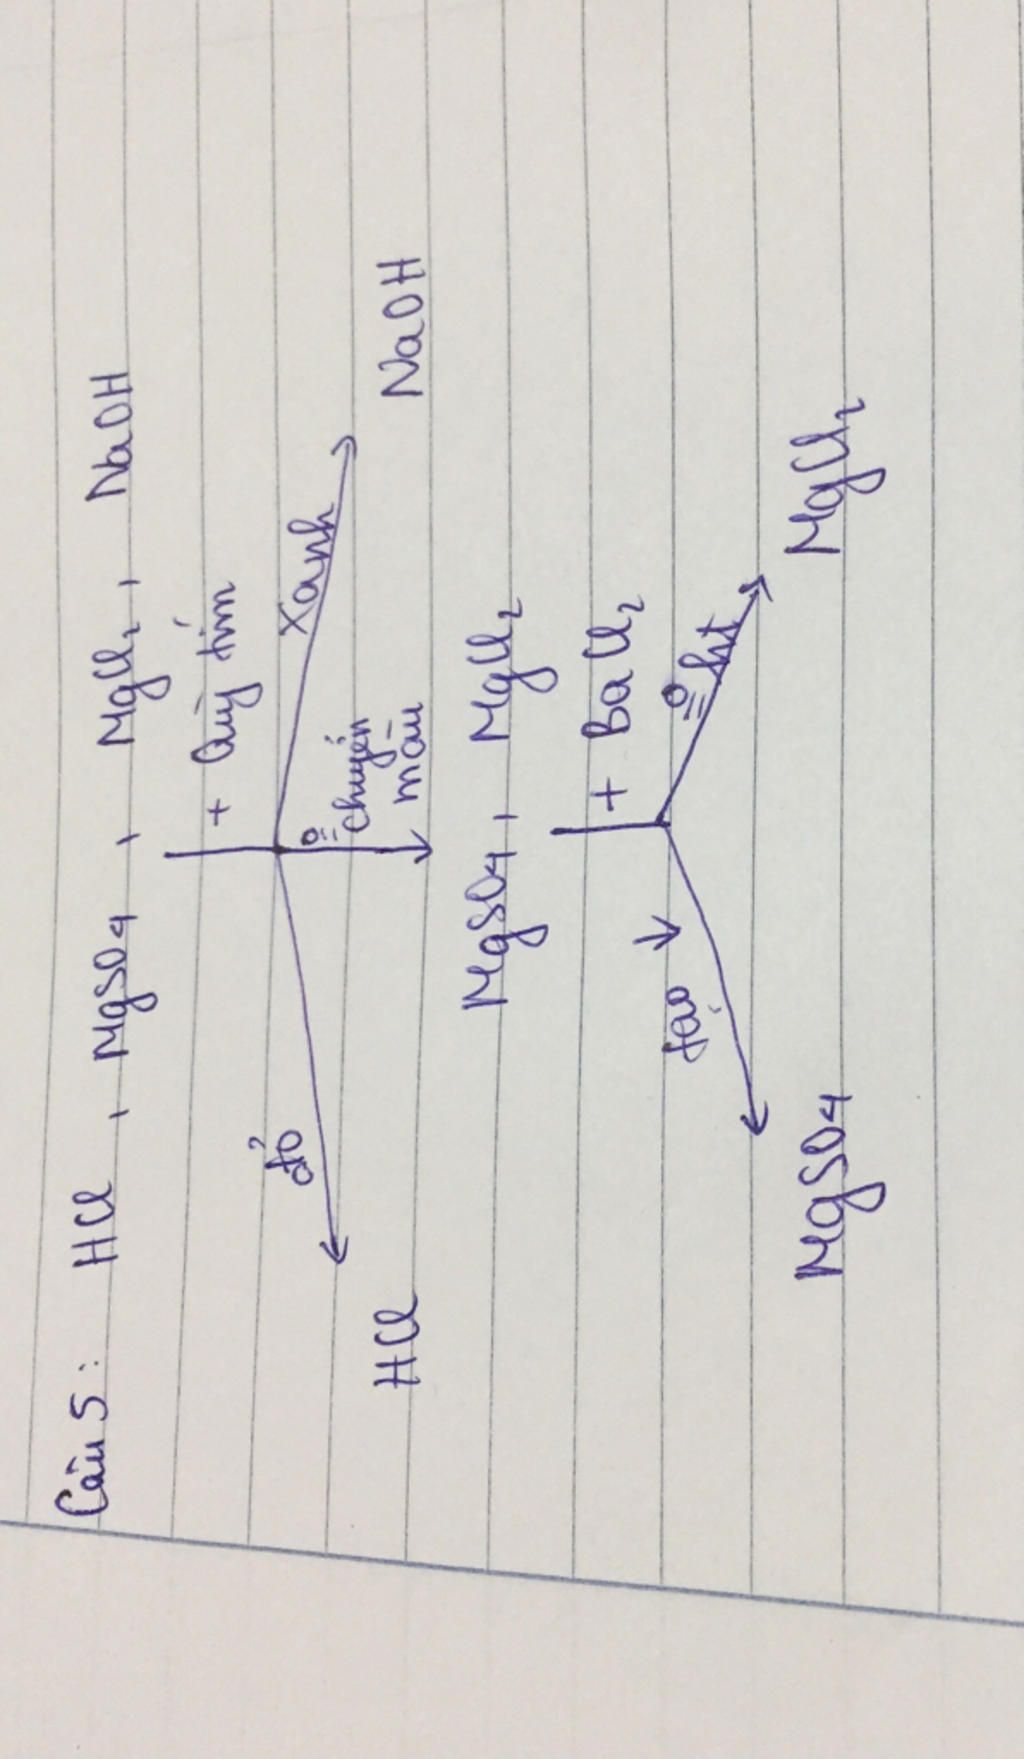 Câu 5: HCl, MgSO4, MgCl2, NaOH
+ Quỳ tím
đỏ Xanh
chuyển
màu
HCl NaOH
MgSO4, MgCl2
+ BaCl2
tạo ↓ ht
MgSO4 MgCl2